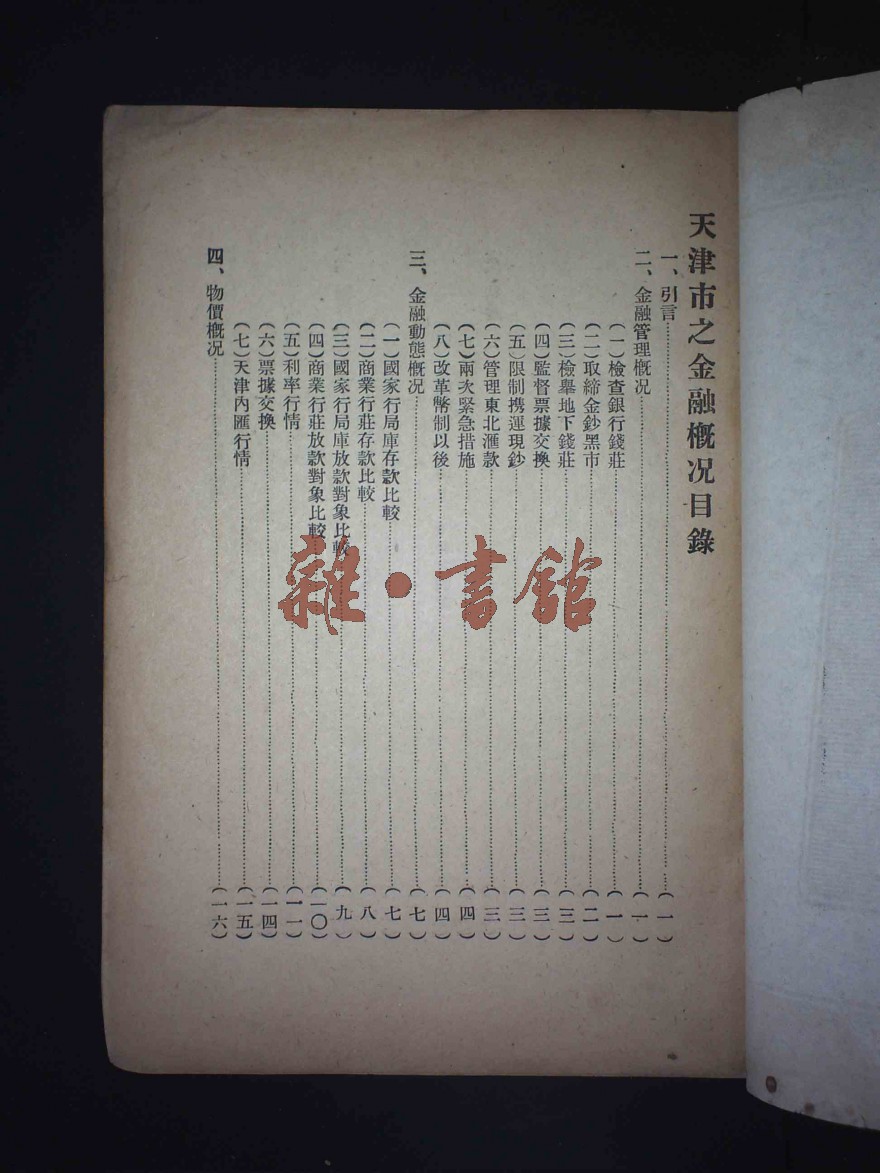 天津市之金融概況目錄
一、引言……(一)
二、金融管理概況……(一)
(一)檢查銀行錢莊……(一)
(二)取締金鈔黑市……(二)
(三)檢舉地下錢莊……(三)
(四)監督票據交換……(三)
(五)限制携運現鈔……(三)
(六)管理東北滙款……(三)
(七)兩次緊急措施……(四)
(八)改革幣制以後……(四)
三、金融動態概況……(七)
(一)國家行局庫存款比較……(七)
(二)商業行莊存款比較……(八)
(三)國家行局庫放款對象比較……(九)
(四)商業行莊放款對象比較……(一〇)
(五)利率行情……(一一)
(六)票據交換……(一四)
(七)天津內匯行情……(一五)
四、物價概況……(一六)
雜·書館